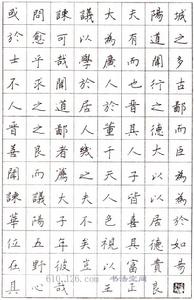 或問諫議大夫陽城
於愈可以為有道之
士乎哉學廣而聞多
不求聞於人也行古
人之道居於晉之鄙
晉之鄙人薰其德而
善良者幾千人大臣
聞而薦之天子以為
諫議大夫人皆以為
華陽子不色喜居於
位五年矣視其德如
在野彼豈以富貴
其心哉